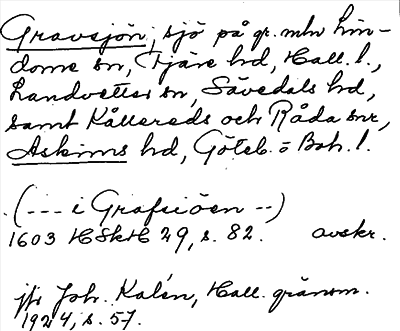 Gravsjön, sjö på gr. mln Lin-
dome sn, Fjäre hd, Hall. l.,
Landvetter sn, Sävedals hd,
samt Kållereds och Råda snr,
Askims hd, Göteb. o Boh. l.
(--- i Grafsiöen --)
1603 HSkH 29, s. 82. avskr.
jfr Joh. Kalén, Hall. gränsm.
1924, s. 57.